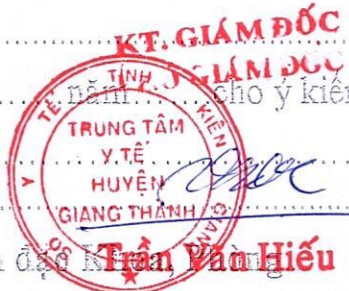 KT. GIÁM ĐỐC
GIÁM ĐỐC
năm......cho ý kiến
SỞ Y TẾ TỈNH KIÊN GIANG
TRUNG TÂM
Y TẾ
HUYỆN
GIANG THÀNH
đạo Khoa, Phòng
Trần Văn Hiếu